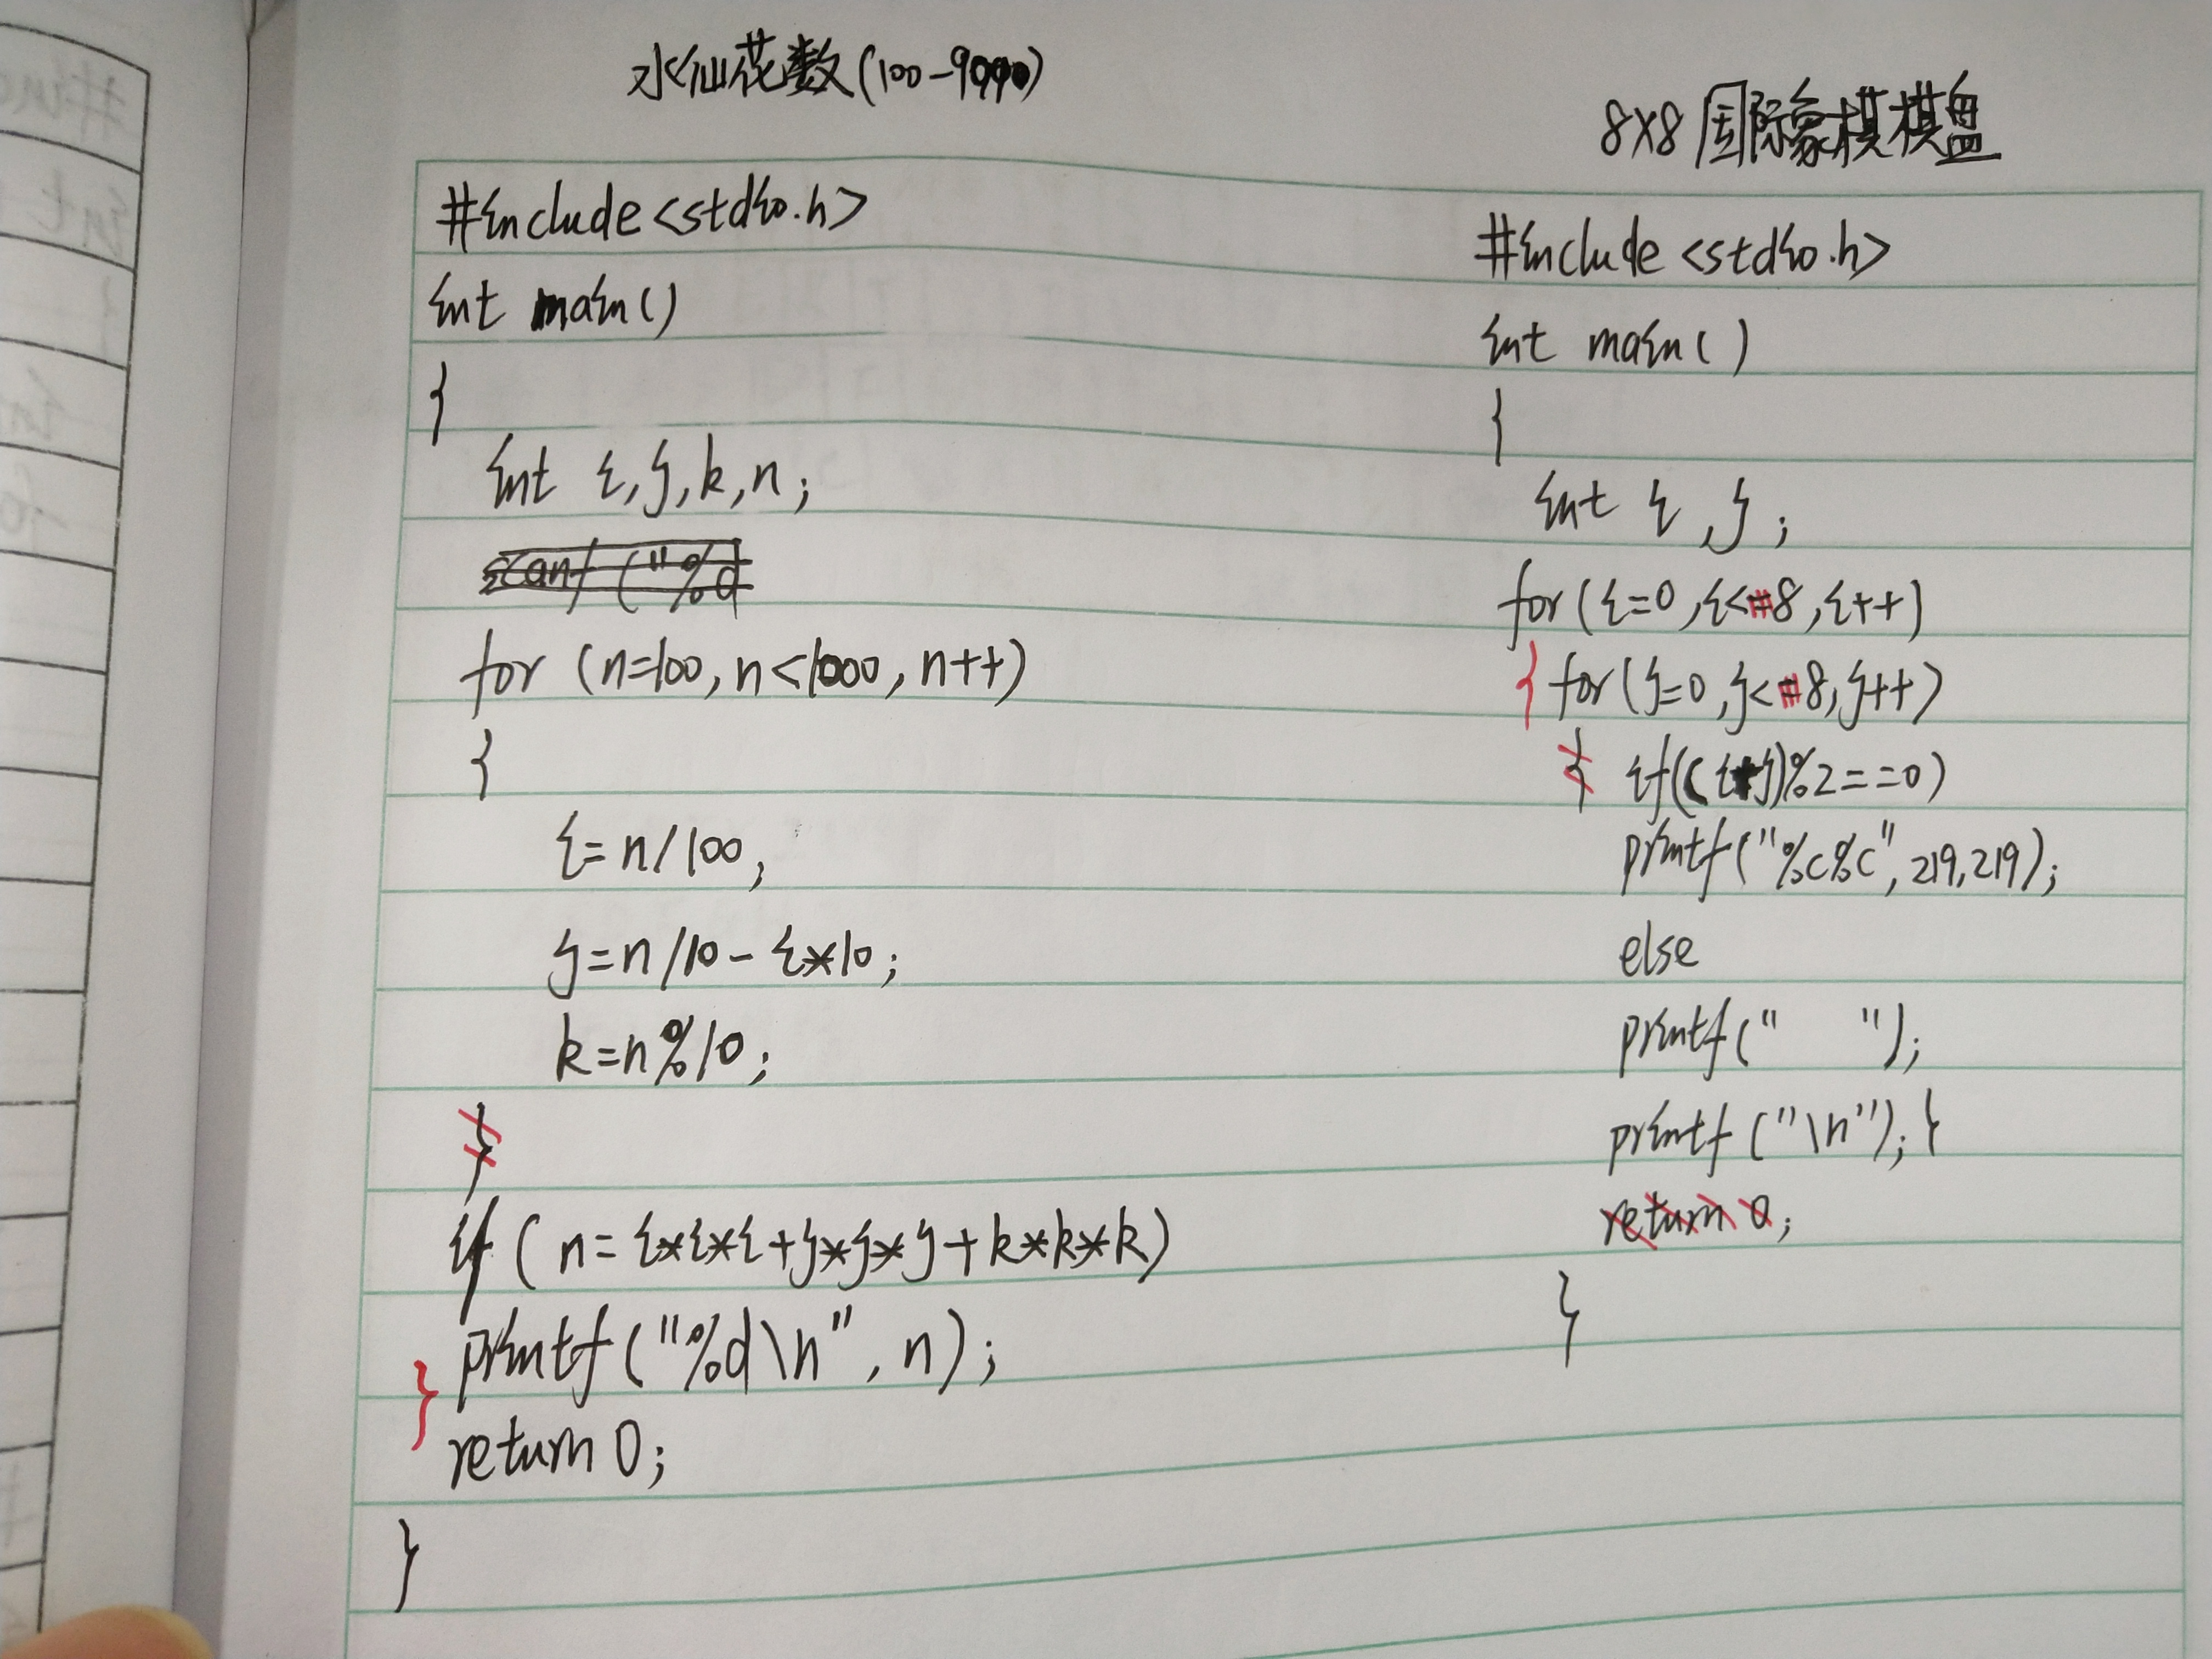 水仙花数(100-9090)
#include<stdio.h>
int main()
{
int i,j,k,n;
for (n=100,n<1000,n++)
{
i=n/100;
j=n/10-i*10;
k=n%10;
}
if (n=i*i*i+j*j*j+k*k*k)
printf("%d\n",n);
}
return 0;
}
8x8国际象棋棋盘
#include<stdio.h>
int main()
{
int i,j;
for(i=0,i<8,i++)
{ for(j=0,j<8,j++)
{ if((i+j)%2==0)
printf("%c%c",219,219);
else
printf("  ");
printf("\n");}
return 0;
}